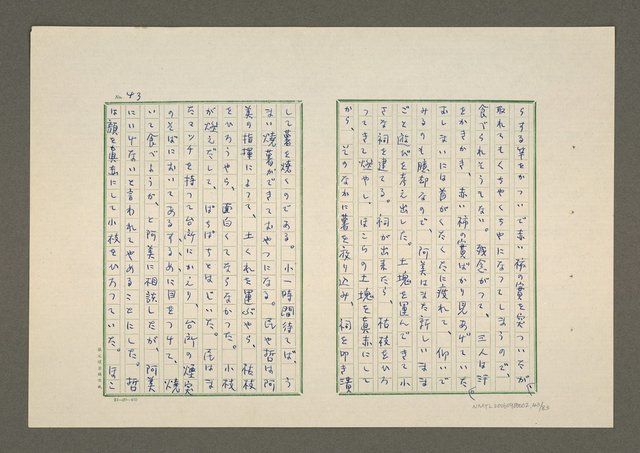 らする竿をかついで赤い柿の實を突ついたが
取れてもくちやくちやになつてしまうので、
食べられそうもない。殘念がつて、三人は汗
をかきかき、赤い柿の實ばかり見あげていた。
おしまいには首がくたくたに疲れて、仰いで
みるのも臆却なので、阿美はまた新しいまま
ごと遊びを考え出した。土塊を運んできて小
さな祠を建てる。祠が出来たら、枯枝をひろ
つてきて燃やし、ほこらの土塊を真赤にして
から、そのなかに薯を放り込み、祠を叩き潰
No. 43
して薯を焼くのである。小一時間待てば、う
まい焼薯ができておやつになる。民や哲は阿
美の指揮によつて、土くれを運ぶやら、枯枝
をひろうやら、面白くてならなかつた。小枝
が燃えだして、ぱちぱちとはじいた。民はま
たマッチを持つて台所にかえり、台所の煙突
のそばにおいてあるするめに目をつけて、焼
いて食べようか、と阿美に相談したが、阿美
にいけないと言われてやめることにした。哲
は顔を真赤にして小枝をひろつていた。ほこ
NMTL20050980002_43/83